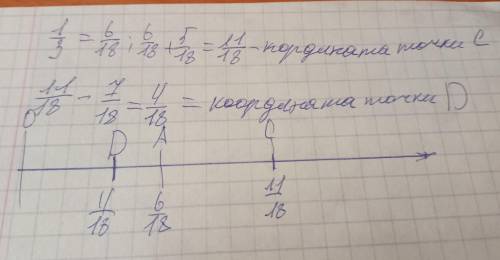 1/3 = 6/18; 6/18 + 5/18 = 11/18 - кордината точки С
11/18 - 7/18 = 4/18 = координата точки D
О D А С
4/18 6/18 11/18